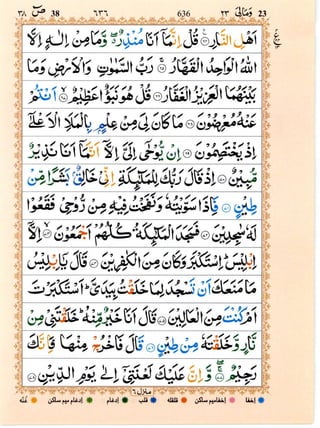 ص ٣٨ 38 ٦٣٦ 636 ٢٣ وَمَالِيَ 23
اَهْلِ النَّارِ ۟ قُلْ اِنَّمَاۤ اَنَا مُنْذِرٌ ۖۗ وَّمَا مِنْ اِلٰهٍ اِلَّا
اللّٰهُ الْوَاحِدُ الْقَهَّارُ ۟ رَبُّ السَّمٰوٰتِ وَالْاَرْضِ وَمَا
بَيْنَهُمَا الْعَزِيْزُ الْغَفَّارُ ۟ قُلْ هُوَ نَبَؤٌا عَظِيْمٌ ۟ اَنْتُمْ
عَنْهُ مُعْرِضُوْنَ ۟ مَا كَانَ لِيَ مِنْ عِلْمٍ بِالْمَلَاِ الْاَعْلٰۤى
اِذْ يَخْتَصِمُوْنَ ۟ اِنْ يُّوْحٰۤى اِلَيَّ اِلَّاۤ اَنَّمَاۤ اَنَا نَذِيْرٌ
مُّبِيْنٌ ۟ اِذْ قَالَ رَبُّكَ لِلْمَلٰٓئِكَةِ اِنِّيْ خَالِقٌۢ بَشَرًا مِّنْ
طِيْنٍ ۟ فَاِذَا سَوَّيْتُهٗ وَنَفَخْتُ فِيْهِ مِنْ رُّوْحِيْ فَقَعُوْا
لَهٗ سٰجِدِيْنَ ۟ فَسَجَدَ الْمَلٰٓئِكَةُ كُلُّهُمْ اَجْمَعُوْنَ ۟ اِلَّاۤ
اِبْلِيْسَ ؕ اِسْتَكْبَرَ وَكَانَ مِنَ الْكٰفِرِيْنَ ۟ قَالَ يٰۤاِبْلِيْسُ
مَا مَنَعَكَ اَنْ تَسْجُدَ لِمَا خَلَقْتُ بِيَدَيَّ ؕ اَسْتَكْبَرْتَ
اَمْ كُنْتَ مِنَ الْعَالِيْنَ ۟ قَالَ اَنَا خَيْرٌ مِّنْهُ ؕ خَلَقْتَنِيْ مِنْ
نَّارٍ وَّخَلَقْتَهٗ مِنْ طِيْنٍ ۟ قَالَ فَاخْرُجْ مِنْهَا فَاِنَّكَ
رَجِيْمٌ ۟ وَّاِنَّ عَلَيْكَ لَعْنَتِيْۤ اِلٰى يَوْمِ الدِّيْنِ ۟
منزل ٦
اخفا اخفا میم ساکن قلقلہ قلب ادغام ادغام میم ساکن غنّہ